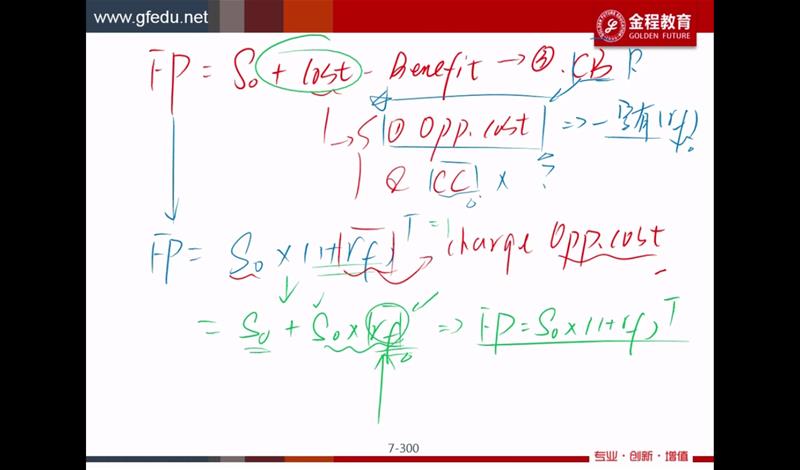 www.gfedu.net
金程教育
GOLDEN FUTURE
FP = S₀ + Cost - Benefit → ③ CB
① Opp. cost ⇒ 一定有(rf)
② CC × ?
FP = S₀ × (1+rf)^T =1 charge Opp. cost
= S₀ + S₀ × rf ⇒ FP = S₀ × (1+rf)^T
7-300
专业·创新·增值